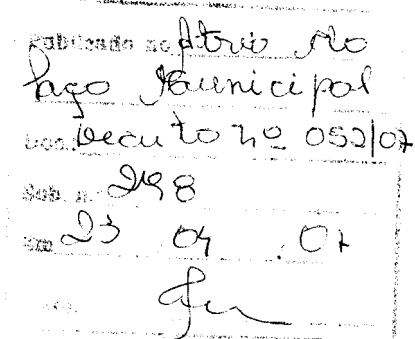 Publicado no Átrio do
Paço Municipal
Doc. Decreto nº 052/07
Sob. n. 298
Em 23 04 07